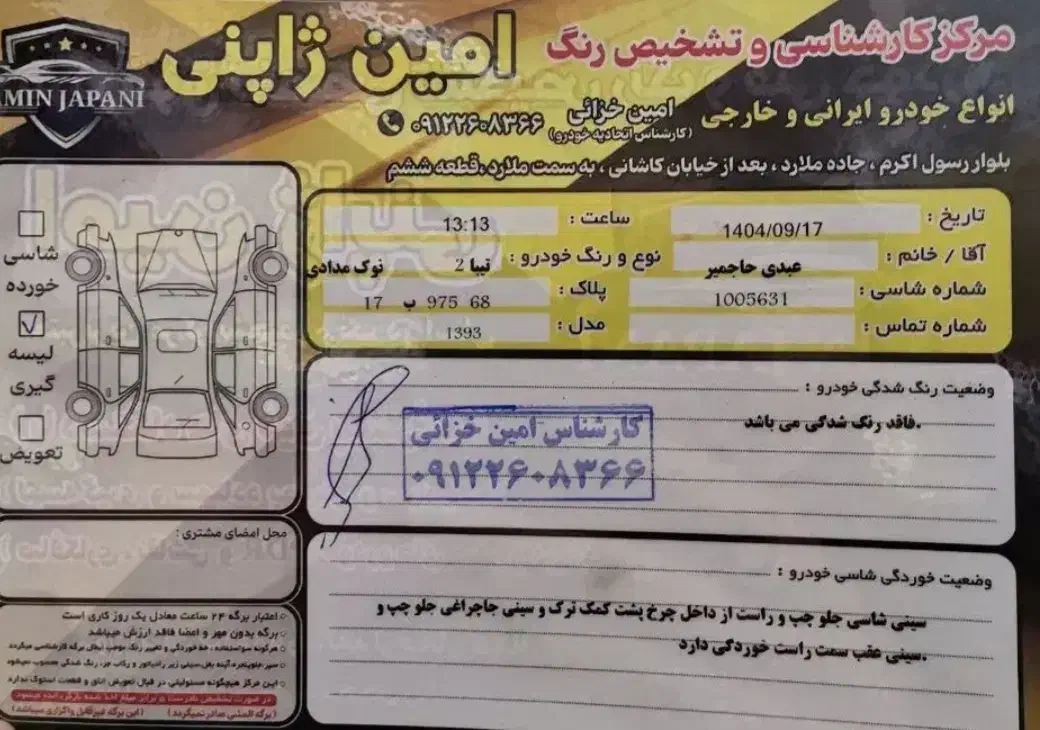 مرکز کارشناسی و تشخیص رنگ امین ژاپنی
AMIN JAPANI
انواع خودرو ایرانی و خارجی امین خزائی ۰۹۱۲۲۶۰۸۳۶۶
(کارشناس اتحادیه خودرو)
بلوار رسول اکرم ، جاده ملارد ، بعد از خیابان کاشانی ، به سمت ملارد ، قطعه ششم
تاریخ : 1404/09/17 ساعت : 13:13
آقا / خانم : عبدی حاجمیر نوع و رنگ خودرو : تیبا 2 نوک مدادی
شماره شاسی : 1005631 پلاک : 68 975 ب 17
شماره تماس : مدل : 1393
شاسی خورده
لیسه گیری
تعویض
وضعیت رنگ شدگی خودرو :
فاقد رنگ شدگی می باشد.
کارشناس امین خزائی
۰۹۱۲۲۶۰۸۳۶۶
وضعیت خوردگی شاسی خودرو :
سینی شاسی جلو چپ و راست از داخل چرخ پشت کمک ترک و سینی جاچراغی جلو چپ و
سینی عقب سمت راست خوردگی دارد.
محل امضای مشتری :
اعتبار برگه ۲۴ ساعت معادل یک روز کاری است
برگه بدون مهر و امضا فاقد ارزش میباشد
هرگونه سواستفاده ، خط خوردگی و تغییر رنگ موجب ابطال برگه کارشناسی میگردد
این مرکز هیچگونه مسئولیتی در قبال تعویض اتاق و قطعات استوک ندارد
(برگه المثنی صادر نمیگردد) (این برگه غیرقابل واگذاری میباشد)